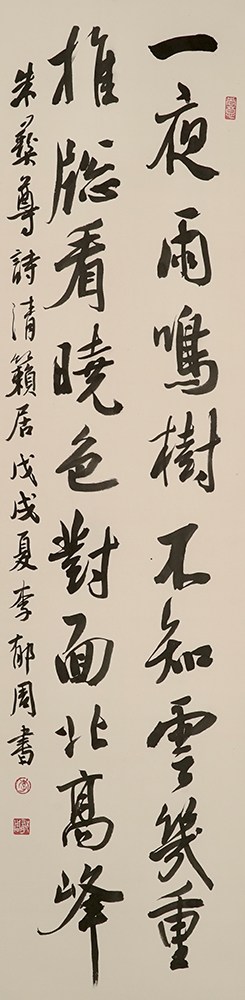 一夜雨鳴樹不知雲幾重
推牕看曉色對面北高峰
朱彝尊詩清籟居戊戌夏李郁周書